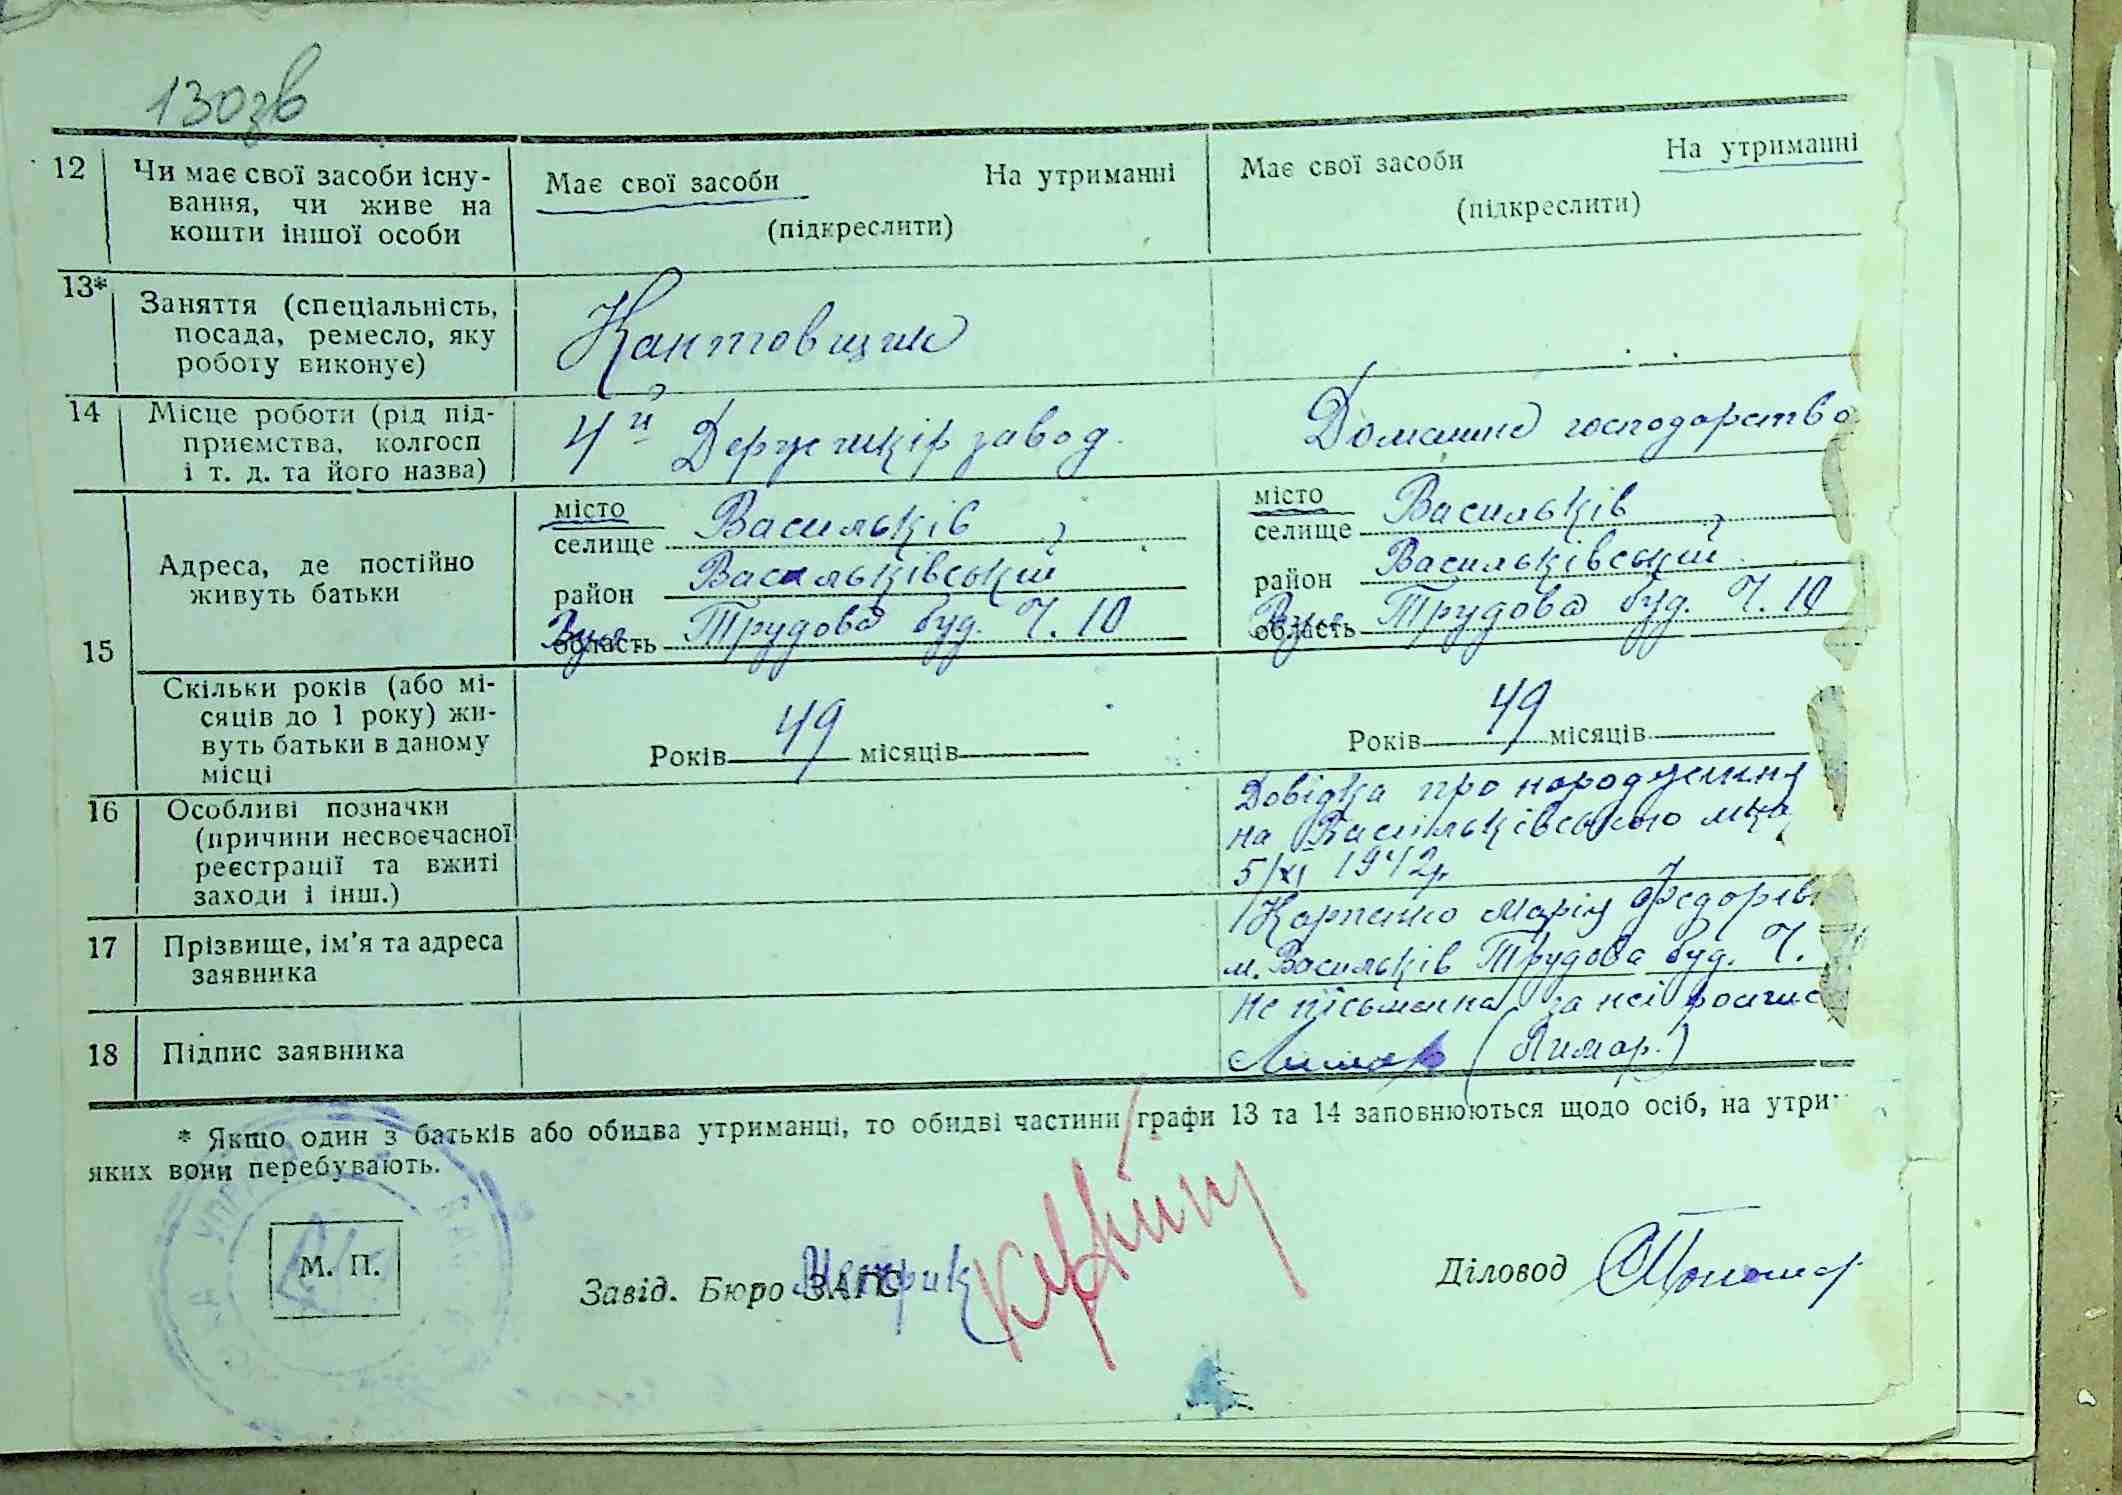 130зв
12 Чи має свої засоби існу-
вання, чи живе на
кошти іншої особи
Має свої засоби На утриманні
(підкреслити)
Має свої засоби На утриманні
(підкреслити)
13* Заняття (спеціальність,
посада, ремесло, яку
роботу виконує)
Кантовщик
14 Місце роботи (рід під-
приємства, колгосп
і т. д. та його назва)
4й Держ шкір завод.
Домашнє господарство
15
Адреса, де постійно
живуть батьки
місто
селище Васильків
район Васильківський
область Трудова буд. Ч. 10
місто
селище Васильків
район Васильківський
область Трудова буд. Ч. 10
Скільки років (або мі-
сяців до 1 року) жи-
вуть батьки в даному
місці
Років 49 місяців
Років 49 місяців
16 Особливі позначки
(причини несвоєчасної
реєстрації та вжиті
заходи і інш.)
Довідка про народження
на Васильківського
5/XI 1942р.
17 Прізвище, ім'я та адреса
заявника
Карпенко Марія Федорів
м. Васильків Трудова буд. Ч.
18 Підпис заявника
не письменна за неї розпис
Лимар (Лимар.)
* Якщо один з батьків або обидва утриманці, то обидві частини графи 13 та 14 заповнюються щодо осіб, на утри-
яких вони перебувають.
М. П.
Завід. Бюро ЗАГС
Діловод